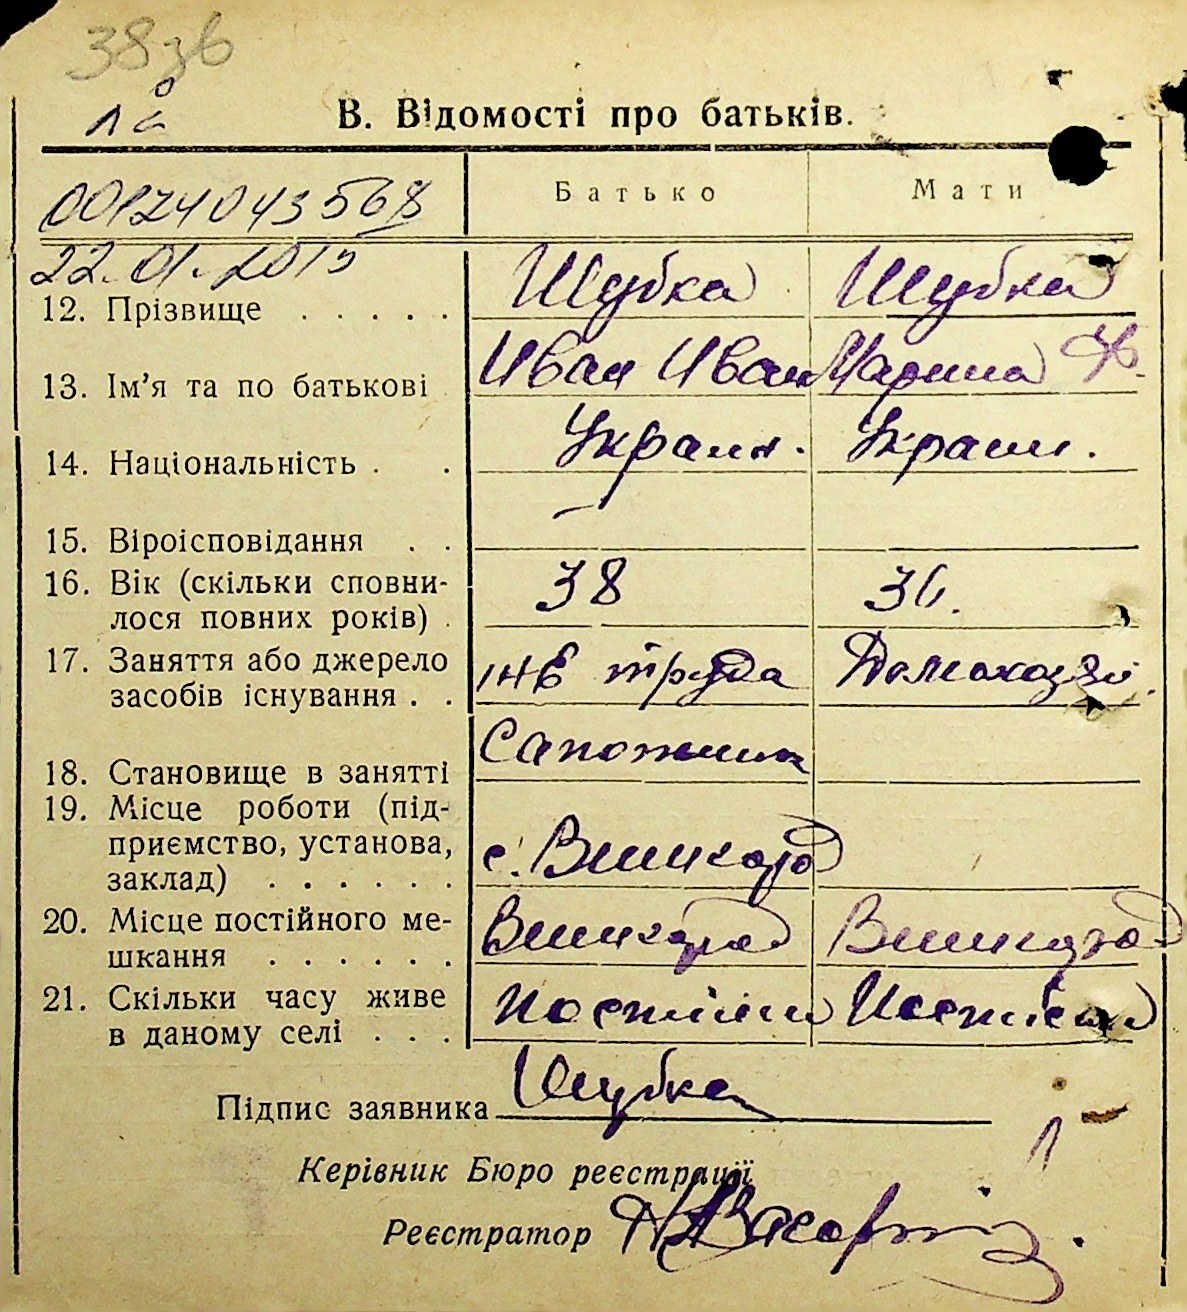 38зв
В. Відомості про батьків.
Батько Мати
00124043568
22.01.2015
12. Прізвище . . . . . Шубка Шубка
13. Ім’я та по батькові Иван Иван Марина
14. Національність . . Украин. Украин.
15. Віроісповідання . . –
16. Вік (скільки сповни-
лося повних років) . 38 36.
17. Заняття або джерело
засобів існування . . труда Домохозяй.
Сапожник
18. Становище в занятті
19. Місце роботи (під-
приємство, установа,
заклад) . . . . . . с. Винкород
20. Місце постійного ме-
шкання . . . . . .
21. Скільки часу живе
в даному селі . . .
Підпис заявника Шубка
Керівник Бюро реєстрації
Реєстратор